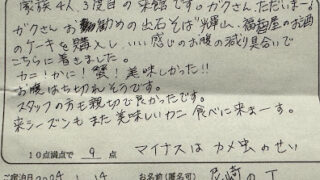 家族4人、3度目の来館です。ガクさん、ただいまー♪
ガクさんお勧めの出石そば"輝山、福智屋のお酒
のケーキを購入し、いい感じのお腹の減り具合で
こちらに着きました。
カニ!かに!蟹!美味しかった!!
お腹はち切れそうです。
スタッフの方も親切で良かったです。
来シーズンもまた美味しいカニ食べに来まーす。
10点満点で 9 点 マイナスはカメ虫のせい
ご宿泊日 2024 1 14 お名前(匿名可) 尼崎の T